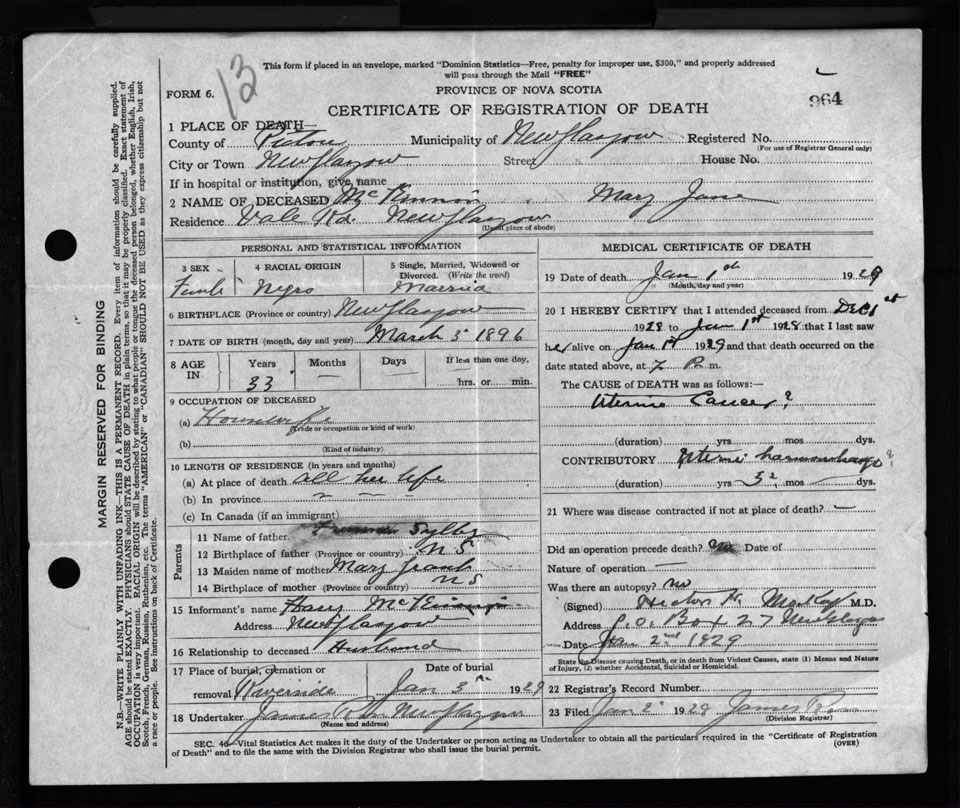 13
This form if placed in an envelope, marked "Dominion Statistics—Free, penalty for improper use, $300," and properly addressed
will pass through the Mail "FREE"
FORM 6.
PROVINCE OF NOVA SCOTIA
964
CERTIFICATE OF REGISTRATION OF DEATH
1 PLACE OF DEATH—
County of Pictou Municipality of New Glasgow Registered No.
(For use of Registrar General only)
City or Town New Glasgow Street House No.
If in hospital or institution, give name
2 NAME OF DECEASED McKinnon Mary Jane
Residence Vale Rd. New Glasgow
(Usual place of abode)
PERSONAL AND STATISTICAL INFORMATION
3 SEX 4 RACIAL ORIGIN 5 Single, Married, Widowed or Divorced. (Write the word)
Female Negro Married
6 BIRTHPLACE (Province or country) New Glasgow
7 DATE OF BIRTH (month, day and year) March 5 1896
8 AGE IN Years Months Days If less than one day,
33 — — hrs. or min.
9 OCCUPATION OF DECEASED
(a)
(Trade or occupation or kind of work)
(b)
(Kind of industry)
10 LENGTH OF RESIDENCE (in years and months)
(a) At place of death all her life
(b) In province
(c) In Canada (if an immigrant)
Parents
11 Name of father
12 Birthplace of father (Province or country) N S
13 Maiden name of mother Mary
14 Birthplace of mother (Province or country) N S
15 Informant's name Harry McKinnon
Address New Glasgow
16 Relationship to deceased Husband
17 Place of burial, cremation or removal Riverside Date of burial Jan 3 1929
18 Undertaker James New Glasgow
(Name and address)
MEDICAL CERTIFICATE OF DEATH
19 Date of death Jan 1st 1929
(Month, day and year)
20 I HEREBY CERTIFY that I attended deceased from Dec 1st
1928 to Jan 1st 1928 that I last saw
her alive on Jan 1st 1929 and that death occurred on
date stated above, at 7 P. m.
The CAUSE of DEATH was as follows:—
Uterine Cancer?
(duration) yrs mos dys.
CONTRIBUTORY Uterine
(duration) yrs mos dys.
21 Where was disease contracted if not at place of death? —
Did an operation precede death? Date of
Nature of operation —
Was there an autopsy? no
(Signed) M.D.
Address P.O. Box 27 New Glasgow
Date Jan 2nd 1929
State the Disease causing Death, or in death from Violent Causes, state (1) Means and Nature
of Injury, (2) whether Accidental, Suicidal or Homicidal.
22 Registrar's Record Number
23 Filed Jan 2 1929 James
(Division Registrar)
SEC. 46—Vital Statistics Act makes it the duty of the Undertaker or person acting as Undertaker to obtain all the particulars required in the "Certificate of Registration
of Death" and to file the same with the Division Registrar who shall issue the burial permit. (OVER)
MARGIN RESERVED FOR BINDING
N.B.—WRITE PLAINLY WITH UNFADING INK—THIS IS A PERMANENT RECORD. Every item of information should be carefully supplied.
AGE should be stated EXACTLY. PHYSICIANS should STATE CAUSE OF DEATH in plain terms, so that it may be properly classified. Exact statement of
OCCUPATION is very important. RACIAL ORIGIN will be described by stating to what people or tongue the deceased person belonged, whether English, Irish,
Scotch, French, German, Russian, Ruthenian, etc. The terms "AMERICAN" or "CANADIAN" SHOULD NOT BE USED as they express citizenship but not
a race or people. See instructions on back of Certificate.